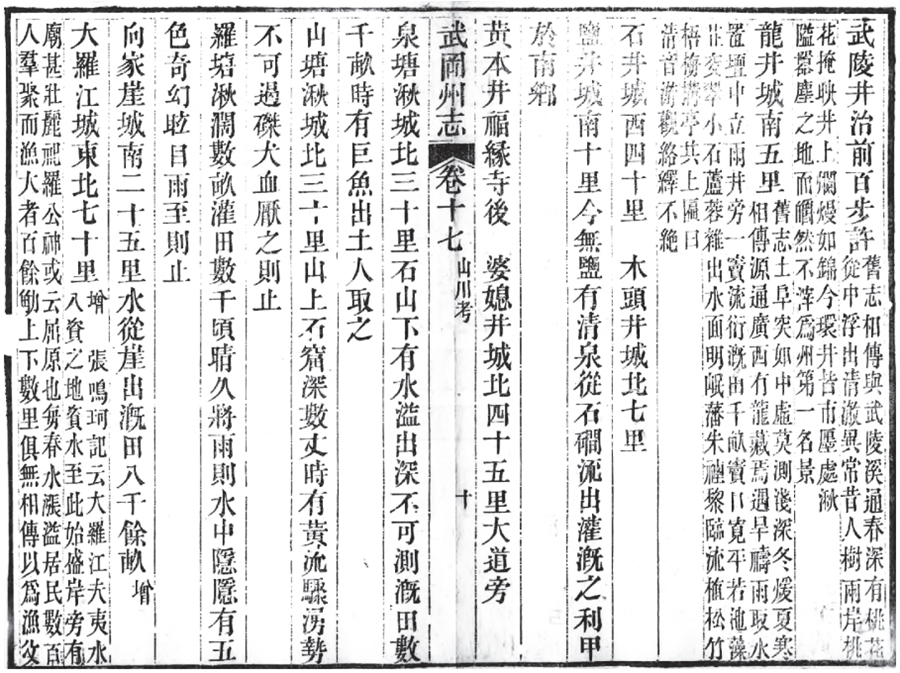 武陵井治前百步許
舊志相傳與武陵溪通春深有桃花
從中浮出清澈異常昔人樹兩岸桃
花掩映井上爛熳如錦今環井皆市廛處湫
隘囂塵之地而曠然不滓爲州第一名景
龍井城南五里
舊志土阜突如中虛莫測淺深冬煖夏寒
相傳源通廣西有龍藏焉遇旱禱雨取水
置壇中立兩井旁一竇流衍漑田千畝竇口寬平若池藻
荇翠小石蘆蓉雜出水面明岷藩朱禋黎臨流植松竹
梧亭共上匾曰
清音游觀絡繹不絶
石井城西四十里 木頭井城北七里
鹽井城南十里今無鹽有清泉從石磵流出灌漑之利甲
於南鄉
黃本井福緣寺後 婆媳井城北四十五里大道旁
武岡州志 卷十七 山川考 十
泉塘湫城北三十里石山下有水溢出深不可測漑田數
千畝時有巨魚出土人取之
山塘湫城北三十里山上石窟深數丈時有黃流驟湧勢
不可過磔犬血厭之則止
羅塘湫濶數畝灌田數千頃晴久將雨則水中隱隱有五
色奇幻眩目雨至則止
向家崖城南二十五里水從崖出漑田八千餘畝 增
大羅江城東北七十里
增 張鳴珂記云大羅江夫夷水
入資之地資水至此始盛岸旁有
廟甚壯麗祀羅公神或云屈原也每春水漲溢居民數百
人羣聚而漁大者百餘觔上下數里俱無相傳以爲漁汝